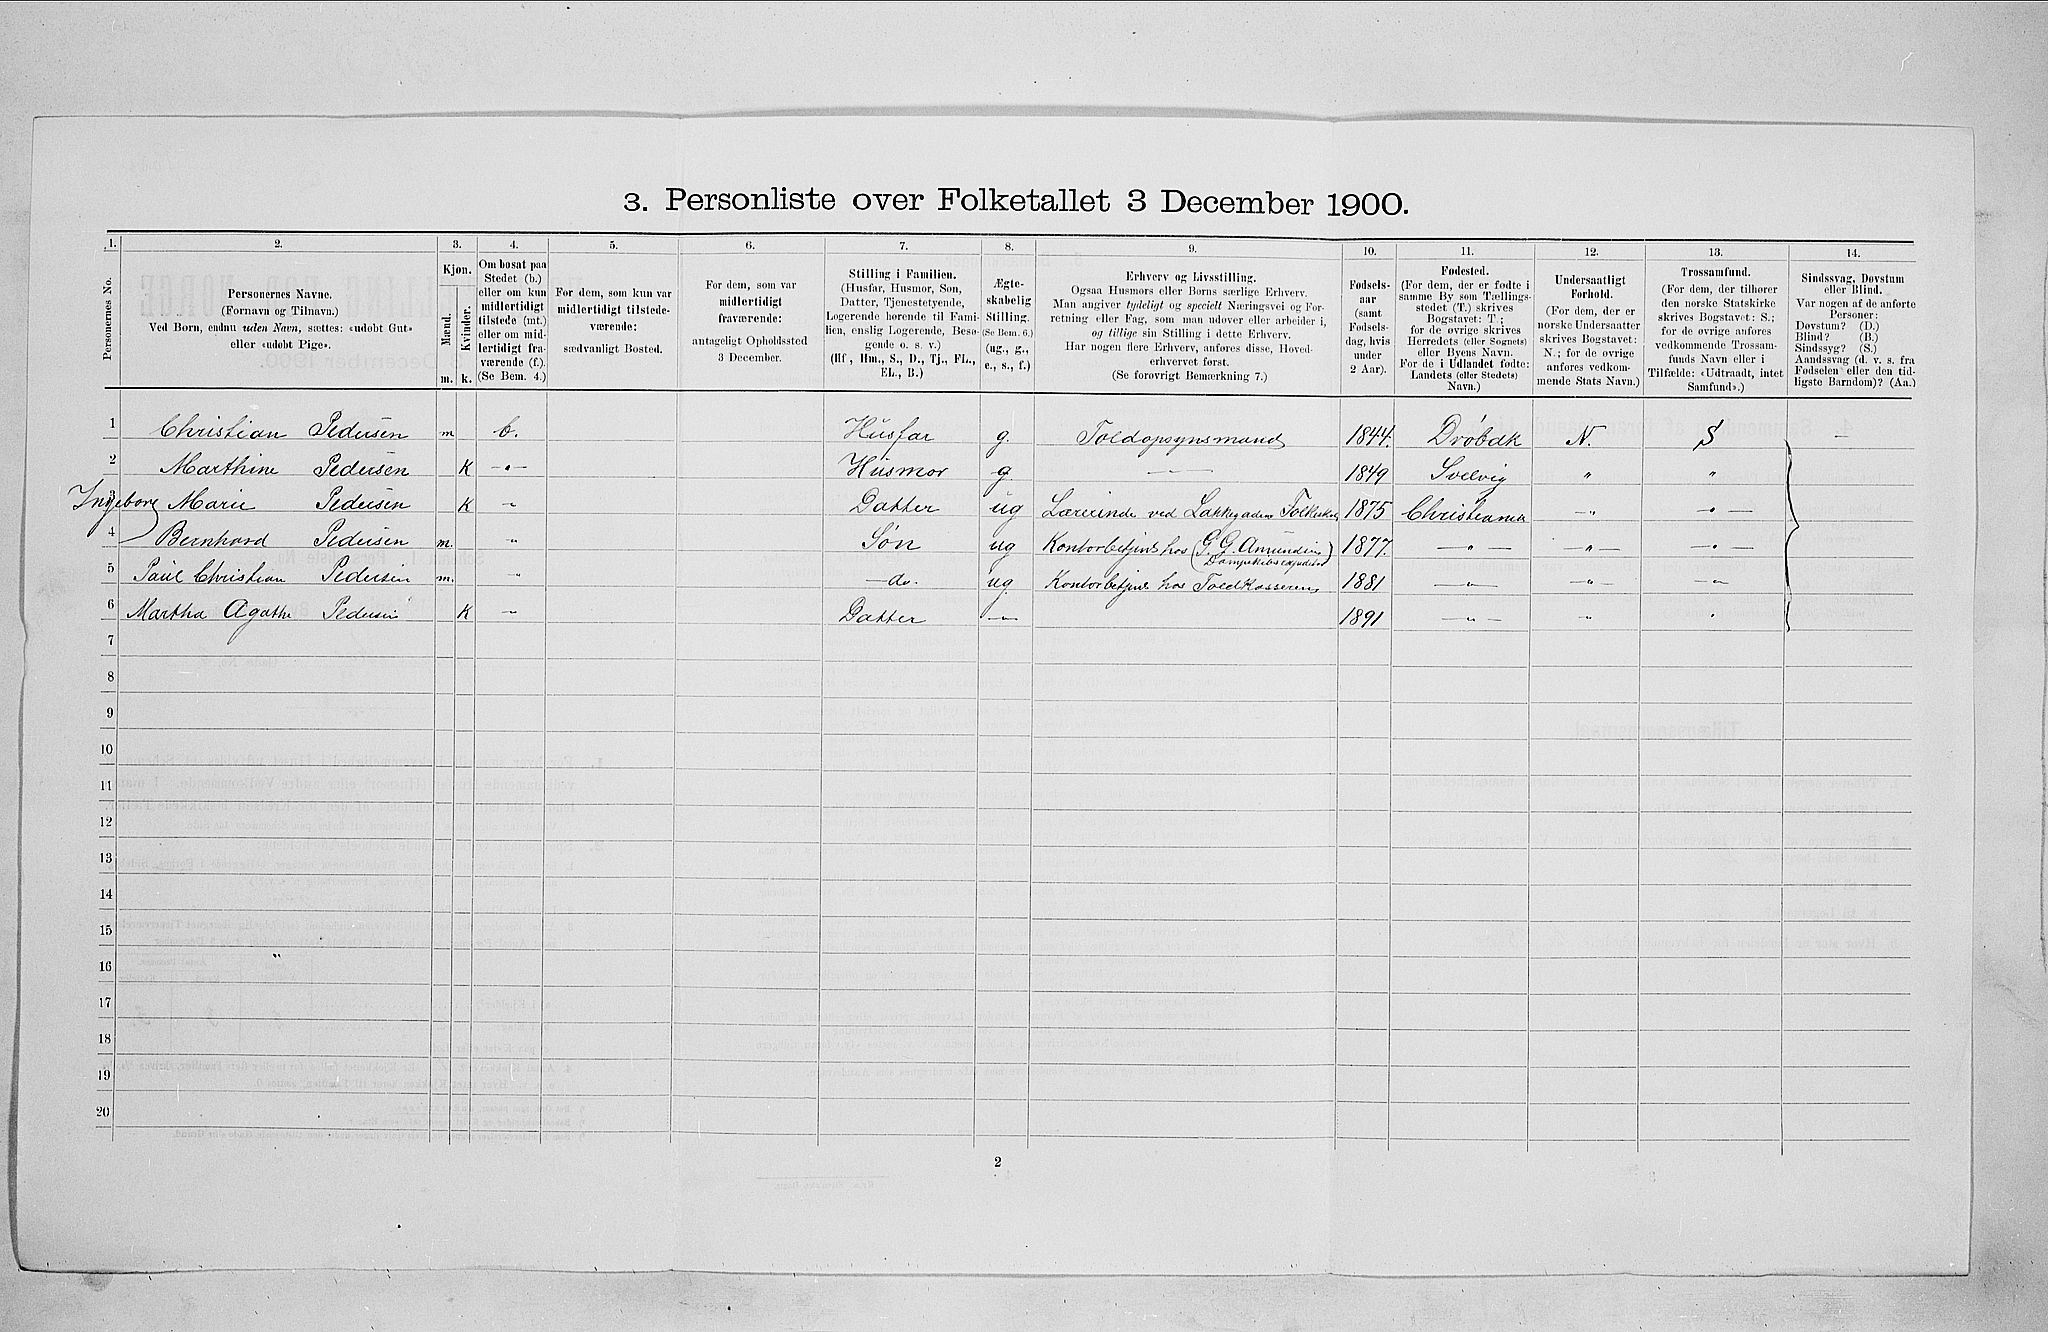 3. Personliste over Folketallet 3 December 1900.
1. 2. 3. 4. 5. 6. 7. 8. 9. 10. 11. 12. 13. 14.
Personernes No.
Personernes Navne.
(Fornavn og Tilnavn.)
Ved Børn, endnu uden Navn, sættes: «udøbt Gut»
eller «udøbt Pige».
Kjøn.
Mænd.
Kvinder.
m. k.
Om bosat paa
Stedet (b.)
eller om kun
midlertidigt
tilstede (mt.)
eller om mid-
lertidigt fra-
værende (f.).
(Se Bem. 4.)
For dem, som kun var
midlertidigt tilstede-
værende:
sædvanligt Bosted.
For dem, som var
midlertidigt
fraværende:
antageligt Opholdssted
3 December.
Stilling i Familien.
(Husfar, Husmor, Søn,
Datter, Tjenestetyende,
Logerende hørende til Fami-
lien, enslig Logerende, Besø-
gende o. s. v.)
(Hf., Hm., S., D., Tj., FL.,
EL., B.)
Ægte-
skabelig
Stilling.
(Se Bem. 6.)
(ug., g.,
e., s., f.)
Erhverv og Livsstilling.
Ogsaa Husmors eller Børns særlige Erhverv.
Man angiver tydeligt og specielt Næringsvei og For-
retning eller Fag, som man udøver eller arbeider i,
og tillige sin Stilling i dette Erhverv.
Har nogen flere Erhverv, anføres disse, Hoved-
erhvervet først.
(Se forøvrigt Bemærkning 7.)
Fødsels-
aar
(samt
Fødsels-
dag, hvis
under
2 Aar).
Fødested.
(For dem, der er fødte i
samme By som Tællings-
stedet (T.) skrives
Bogstavet: T.;
for de øvrige skrives
Herredets (eller Sognets)
eller Byens Navn.
For de i Udlandet fødte:
Landets (eller Stedets)
Navn.)
Undersaatligt
Forhold.
(For dem, der er
norske Undersaatter
skrives Bogstavet:
N.; for de øvrige
anføres vedkom-
mende Stats Navn.)
Trossamfund.
(For dem, der tilhører
den norske Statskirke
skrives Bogstavet: S.;
for de øvrige anføres
vedkommende Trossam-
funds Navn eller i
Tilfælde: «Udtraadt, intet
Samfund».)
Sindssvag, Døvstum
eller Blind.
Var nogen af de anførte
Personer:
Døvstum? (D.)
Blind? (B.)
Sindssyg? (S.)
Aandssvag (d. v. s. fra
Fødselen eller den tid-
ligste Barndom)? (Aa.)
1 Christian Pedersen m b. Husfar g. Toldopsynsmand 1844. Drøbak N. S —
2 Marthine Pedersen K —„— Husmor g — 1849 Svelvig „ „
3 Ingeborg Marie Pedersen K „ Datter ug Lærerinde ved Lakkegadens Folkeskole 1875 Christiania —„— —„—
4 Bernhard Pedersen m. „ Søn ug Kontorbetjent hos (G. G. Amundsens) 1877. —„— —„— —„—
Dampskibsexpedition
5 Paul Christian Pedersen m. „ —do. ug. Kontorbetjent hos Toldkassereren 1881 —„— —„— —„—
6 Martha Agathe Pedersen K „ Datter —„— 1891 —„— „ „
7
8
9
10
11
12
13
14
15
16 „
17
18
19
20
2